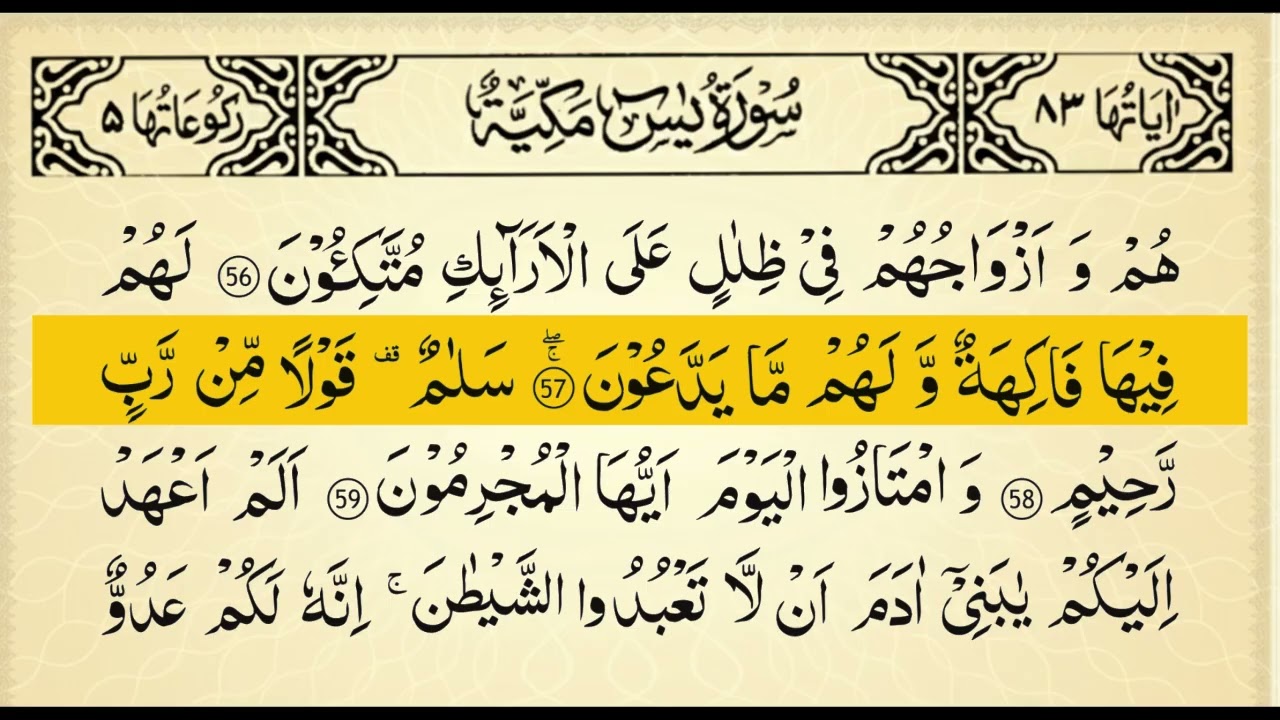 اٰيَاتُهَا ٨٣ سُوْرَةُ يٰسٓ مَكِّيَّةٌ رُكُوْعَاتُهَا ۵
هُمْ وَ اَزْوَاجُهُمْ فِیْ ظِلٰلٍ عَلَی الْاَرَآىِٕكِ مُتَّكِـُٔوْنَ 56 لَهُمْ
فِیْهَا فَاكِهَةٌ وَّ لَهُمْ مَّا یَدَّعُوْنَ 57 ۚۖ سَلٰمٌ ۫ قف قَوْلًا مِّنْ رَّبٍّ
رَّحِیْمٍ 58 وَ امْتَازُوا الْیَوْمَ اَیُّهَا الْمُجْرِمُوْنَ 59 اَلَمْ اَعْهَدْ
اِلَیْكُمْ یٰبَنِیْۤ اٰدَمَ اَنْ لَّا تَعْبُدُوا الشَّیْطٰنَ ۚ اِنَّهٗ لَكُمْ عَدُوٌّ